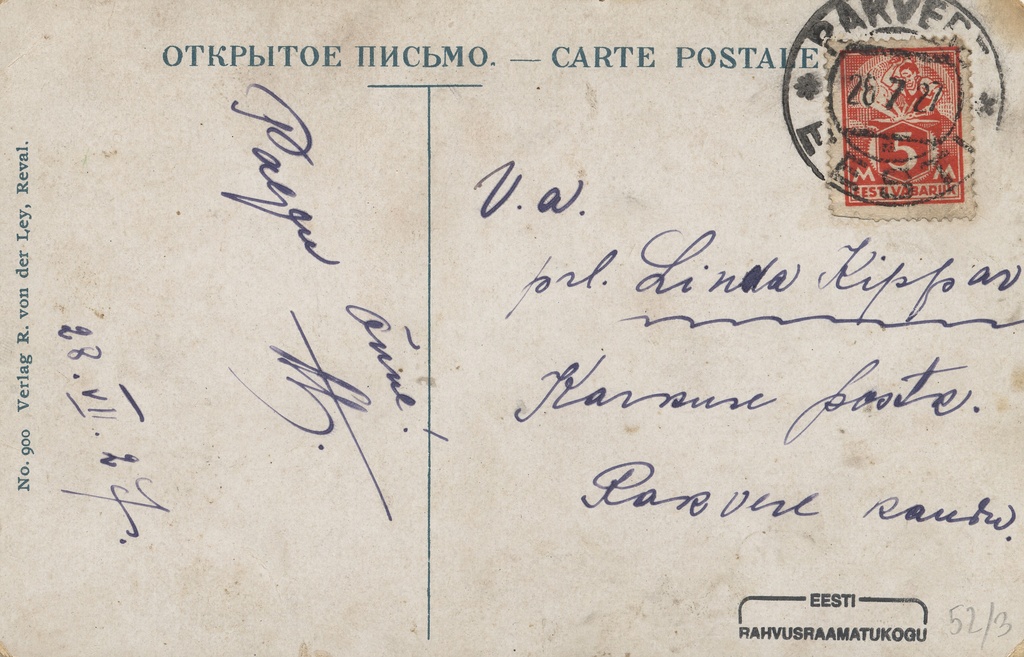 ОТКРЫТОЕ ПИСЬМО. — CARTE POSTALE
RAKVERE
28 7 27
EESTI
5
M M
EESTI VABARIIK
No. 900 Verlag R. von der Ley, Reval.
Palju
õnne!
28. VII. 27.
V. a.
prl. Linda Kippar
Rakvere
EESTI
RAHVUSRAAMATUKOGU
52/3